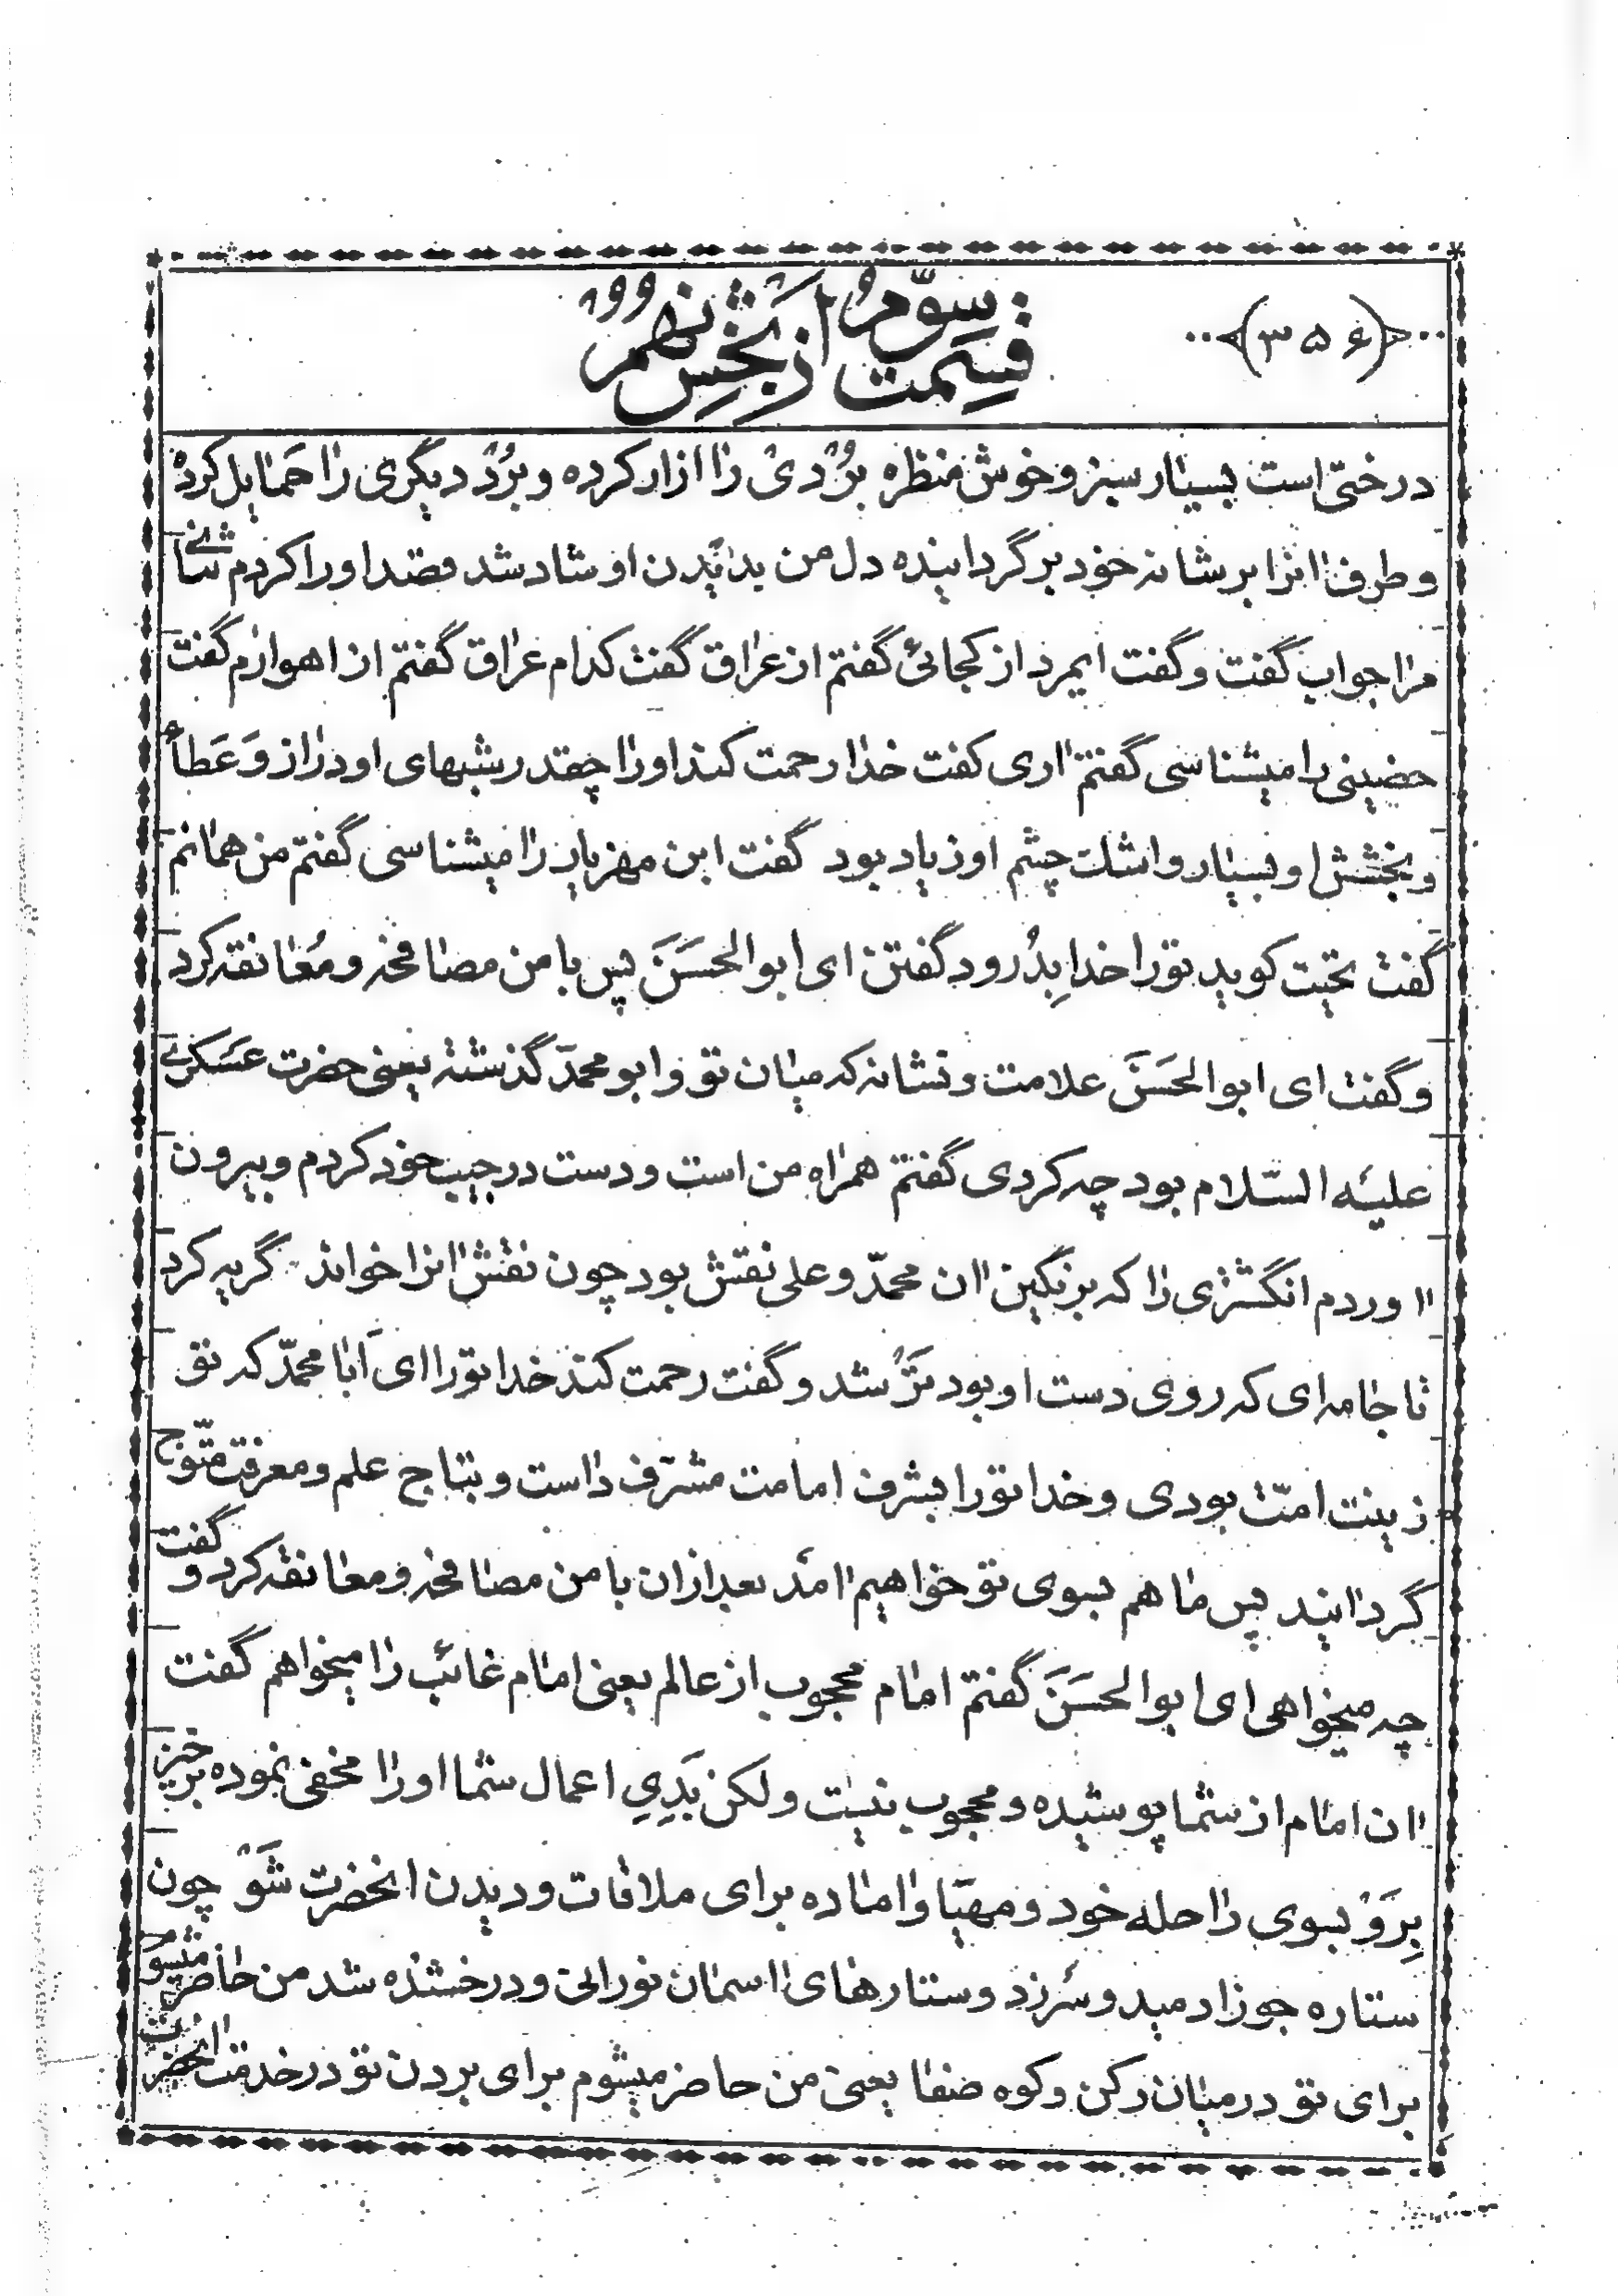 (۳۵۶)
قسمت سوّم از بخش نهم
درختی است بسیار سبز و خوش منظره بُرْدیْ را ازار کرده و بُرْد دیگری را حَمایل کردهْ
و طرف انرا بر شانه خود برگردانیده دل من بدیدن او شاد شد قصد او را کردم
مرا جواب گفت و گفت ایمرد از کجائی گفتم از عراق گفت کدام عراق گفتم از اهوازم گفت
حضینی را میشناسی گفتم اری گفت خدا رحمت کند او را چقدر شبهای او دراز وَ عَطاء
و بخشش او بسیار و اشک چشم او زیاد بود گفت ابن مهزیار را میشناسی گفتم من همانم
گفت تحیّت گوید تو را خدا بِدُرود گفتن ای ابوالحسَنَ پس با من مصافحه و مُعانقه کرد
و گفت ای ابوالحَسَنَ علامت و نشانه که میان تو و ابو محمدّ گذشته یعنی حضرت عسَکری
علیَه السّلام بود چه کردی گفتم همراه من است و دست در جیب خود کردم و بیرون
اوردم انگشتری را که بر نگین ان محمدّ و علی نقش بود چون نقش انرا خواند گریه کرد
تا جامه ای که روی دست او بود تَرْ شد و گفت رحمت کند خدا تو را ای اَبا محمدّ که تو
زینت امتّ بودی و خدا تو را بشرف امامت مشرّف داست و بتاج علم و معرفت متّوج
گردانید پس ما هم بسوی تو خواهیم امَد بعد از ان با من مصافحه و معانقه کرد و گفت
چه میخواهی ای ابوالحسَنَ گفتم امام محجوب از عالم یعنی امام غائب را میخواهم گفت
ان امام از شما پوشیده و محجوب نیست و لکن بَدیِ اعمال شما او را مخفی نموده برخیز
بِرَوْ بسوی راحله خود و مهیّا و اماده برای ملاقات و دیدن انحضرت شَوْ چون
ستاره جوزا دمید و سَر زد و ستارهای اسمان نورانی و درخشنده شد من حاضر میشوم
برای تو در میان رکن و کوه صفا یعنی من حاضر میشوم برای بردن تو در خدمت انحضرت